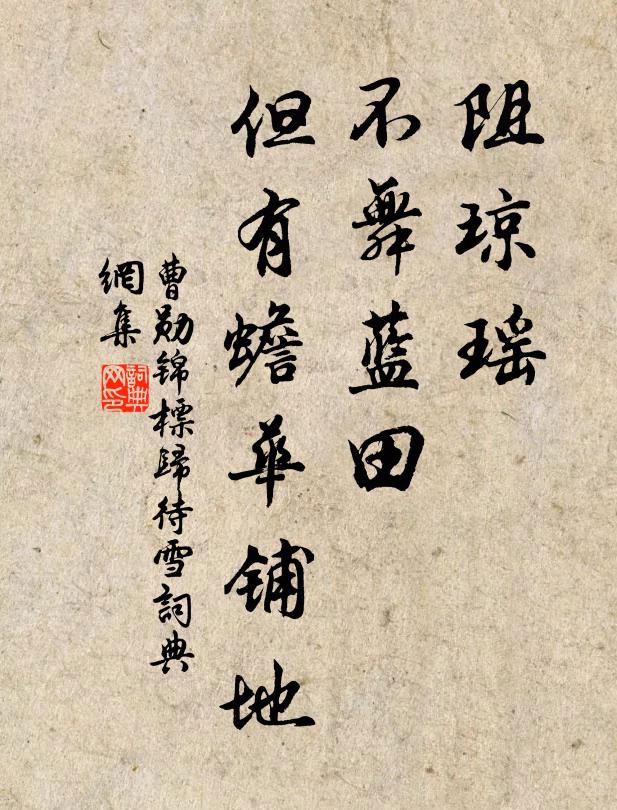 阻琼瑶
不舞藍田
但有蟾華铺地
曹勋锦標歸待雪詞典
網集
詞典
网印